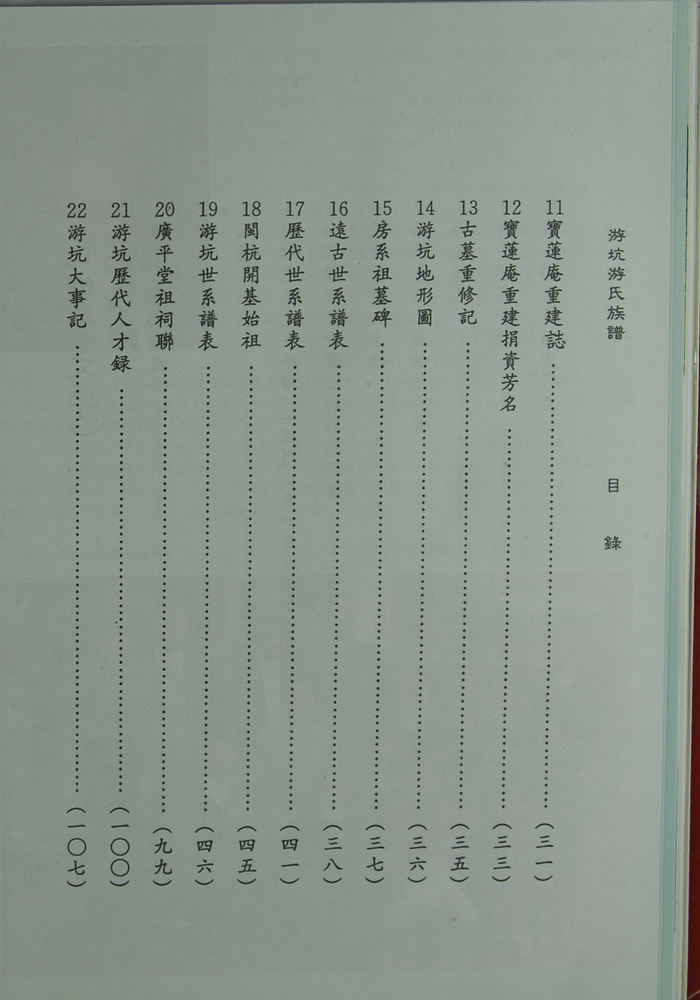 游坑游氏族譜 目錄
11寶蓮庵重建誌……(三一)
12寶蓮庵重建捐資芳名……(三三)
13古墓重修記……(三五)
14游坑地形圖……(三六)
15房系祖墓碑……(三七)
16遠古世系譜表……(三八)
17歷代世系譜表……(四一)
18閩杭開基始祖……(四五)
19游坑世系譜表……(四六)
20廣平堂祖祠聯……(九九)
21游坑歷代人才録……(一〇〇)
22游坑大事記……(一〇七)